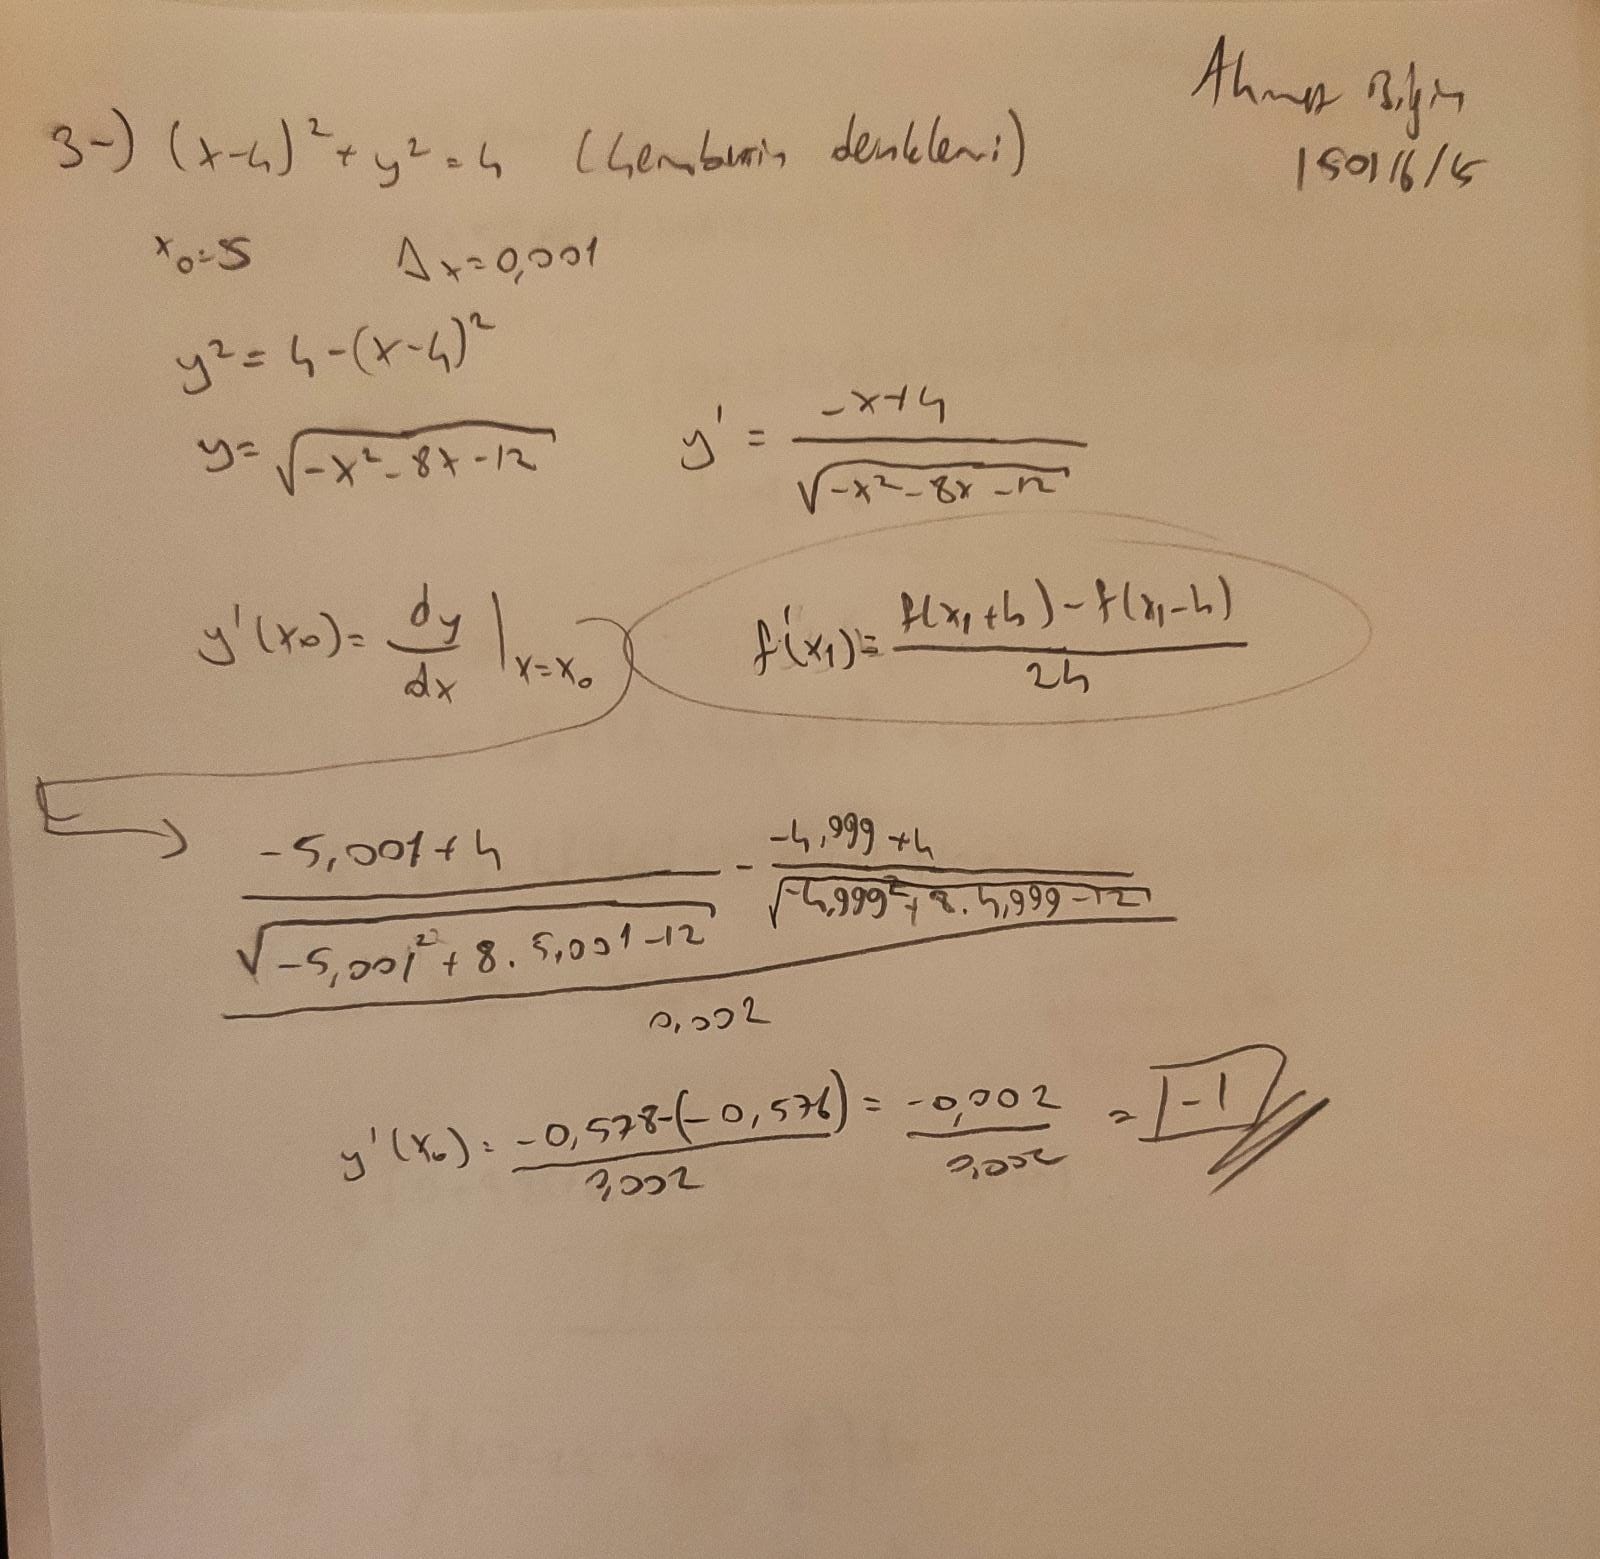 Ahmet Bilgin
3-) (x-4)² + y² = 4 (Çemberin denklemi)
x₀=5 Δx=0,001
y² = 4-(x-4)²
y= √-x²-8x-12 y' = -x+4 / √-x²-8x-12
y'(x₀)= dy/dx |x=x₀ f'(x₁)= f(x₁+h)-f(x₁-h) / 2h
-5,001+4 / √-5,001²+8.5,001-12 - -4,999+4 / √-4,999²+8.4,999-12
0,002
y'(x₀) = -0,578-(-0,576) / 0,002 = -0,002 / 0,002 = -1